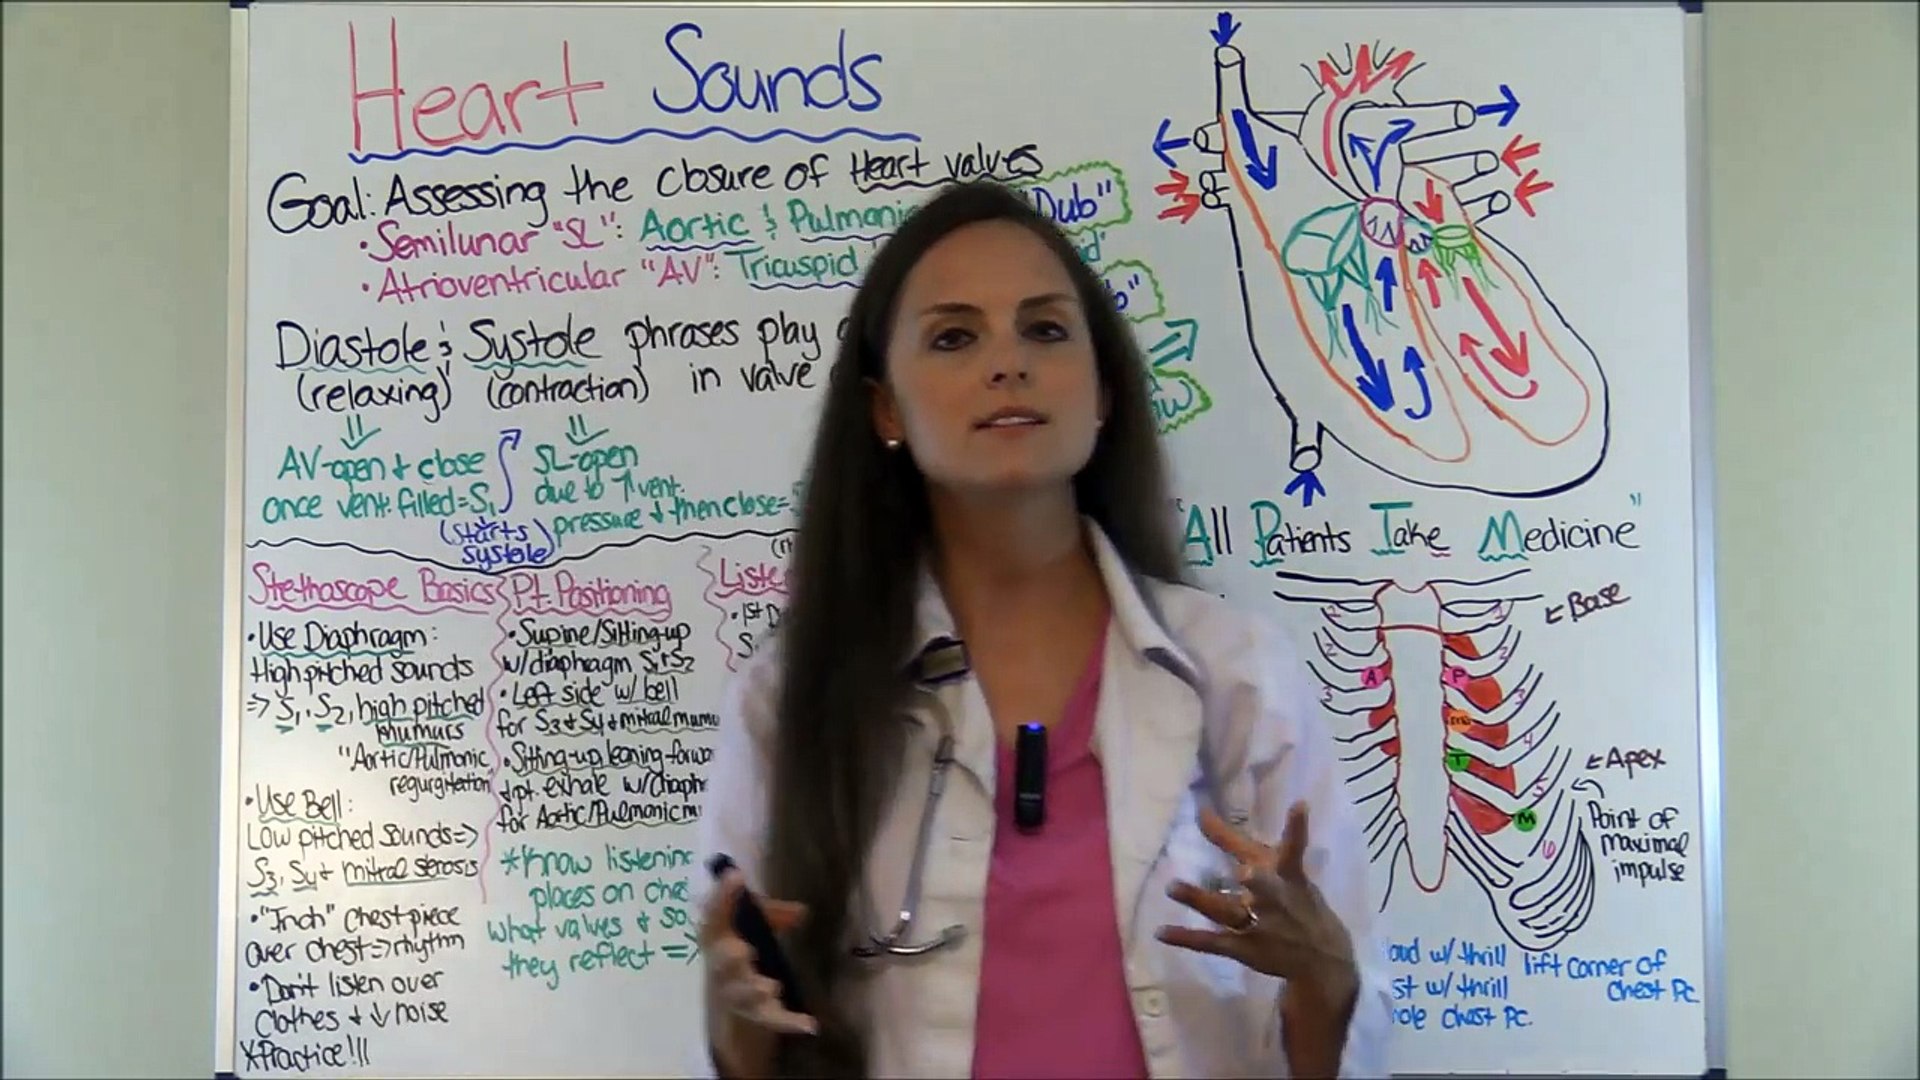 Heart Sounds
Goal: Assessing the closure of Heart valves
• Semilunar "SL": Aortic & Pulmonic "Dub"
• Atrioventricular "AV": Tricuspid
Diastole & Systole phrases play
(relaxing) (contraction) in valve
AV-open & close
once vent. filled=S1
(starts systole)
SL-open
due to ↑ vent.
pressure & then close=
Stethoscope Basics
• Use Diaphragm:
High pitched sounds
=> S1, S2, high pitched
mumurs
"Aortic/Pulmonic
regurgitation
• Use Bell:
Low pitched sounds=>
S3, S4 + mitral stenosis
• "Inch" chestpiece
over chest=>rhythm
• Don't listen over
clothes & ↓ noise
*Practice!!!
Pt. Positioning
• Supine/Sitting-up
w/diaphragm S1+S2
• Left side w/ bell
for S3+S4+mitral
• Sitting-up leaning
pt. exhale w/
for Aortic/Pulmonic
*Know listening
places on
what valves &
they reflect =>
"All Patients Take Medicine"
Base
1
2
2
3
3
4
5
6
A
P
T
M
Apex
Point of
maximal
impulse
w/ thrill
w/ thrill
chest pc.
lift corner of
chest pc